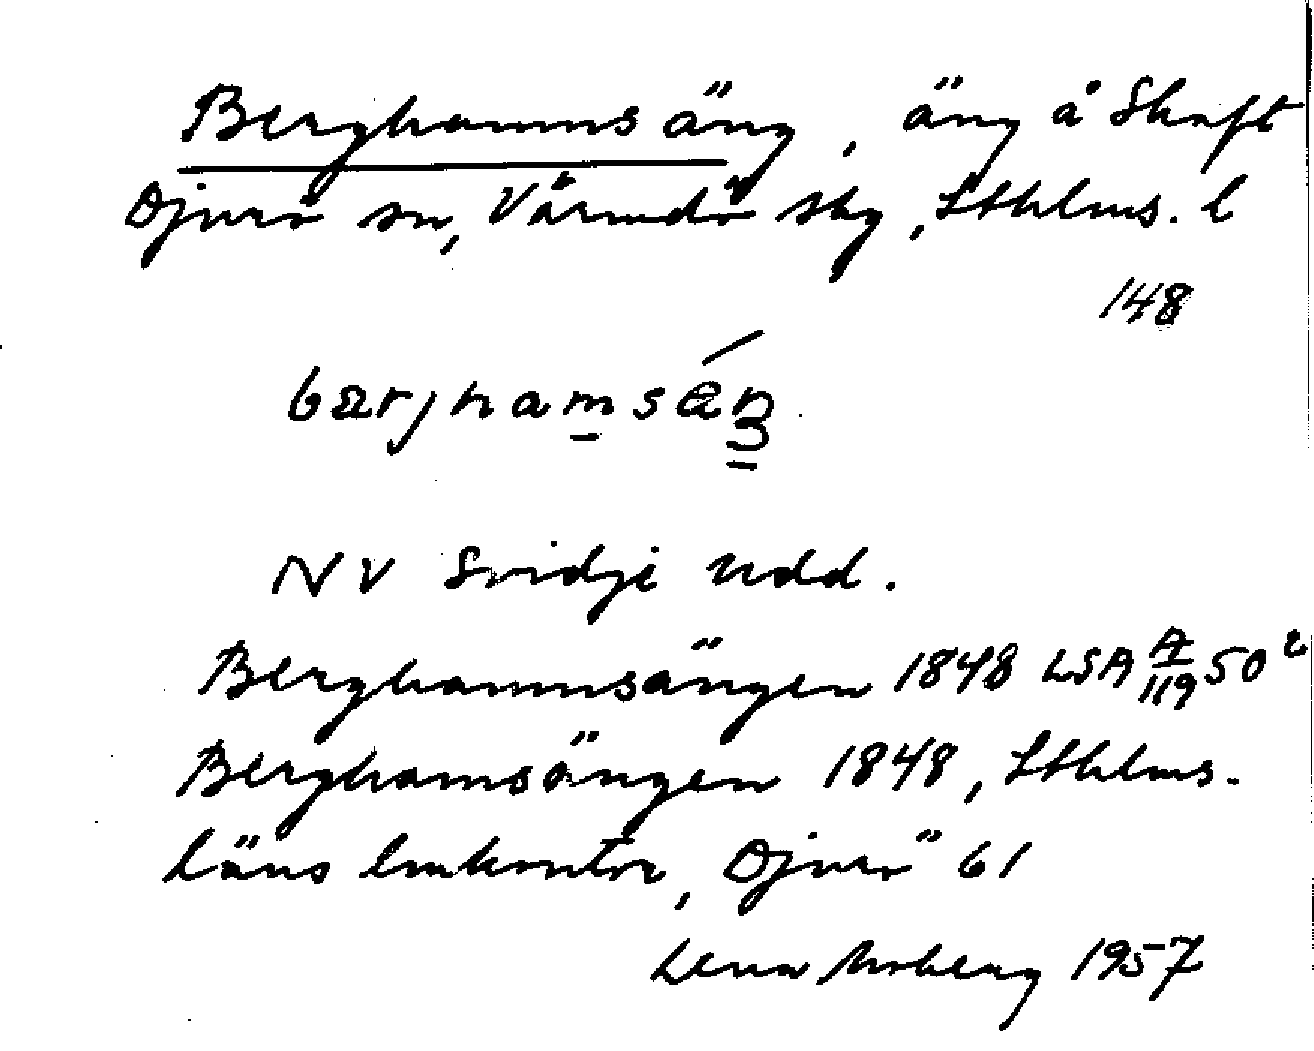 Berghamns äng, äng å Skaft
Djurö sn, Värmdö skg, Sthlms. l
148
bærjhamsǽŋ
NV Svidje udd.
Berghamnsängen 1848 LSA A/119 50²
Berghamsängen 1848, Sthlms.
läns lmkontor, Djurö 61
Lena Moberg 1957